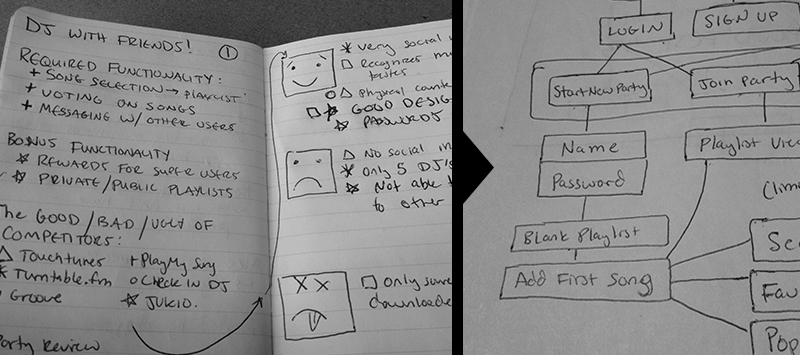 DJ WITH FRIENDS! 1
REQUIRED FUNCTIONALITY:
+ SONG SELECTION → PLAYLIST
+ VOTING ON SONGS
+ MESSAGING W/ OTHER USERS
BONUS FUNCTIONALITY
☆ REWARDS FOR SUPER USERS
☆ PRIVATE/PUBLIC PLAYLISTS
The GOOD/BAD/UGLY OF
COMPETITORS:
△ Touchtunes + PlayMy Song
* Turntable.fm o Check in DJ
Groove ☆ JUKIO.
Party Review
* very social
□ Recognizes
tastes
△ Physical
□ GOOD DESIGN
☆ PASSWORDS
△ No social
* only 5 DJ's
☆ Not able
to other
□ only
LOGIN
SIGN UP
Start New Party
Join Party
Name
Password
Playlist
Blank Playlist
Add First Song